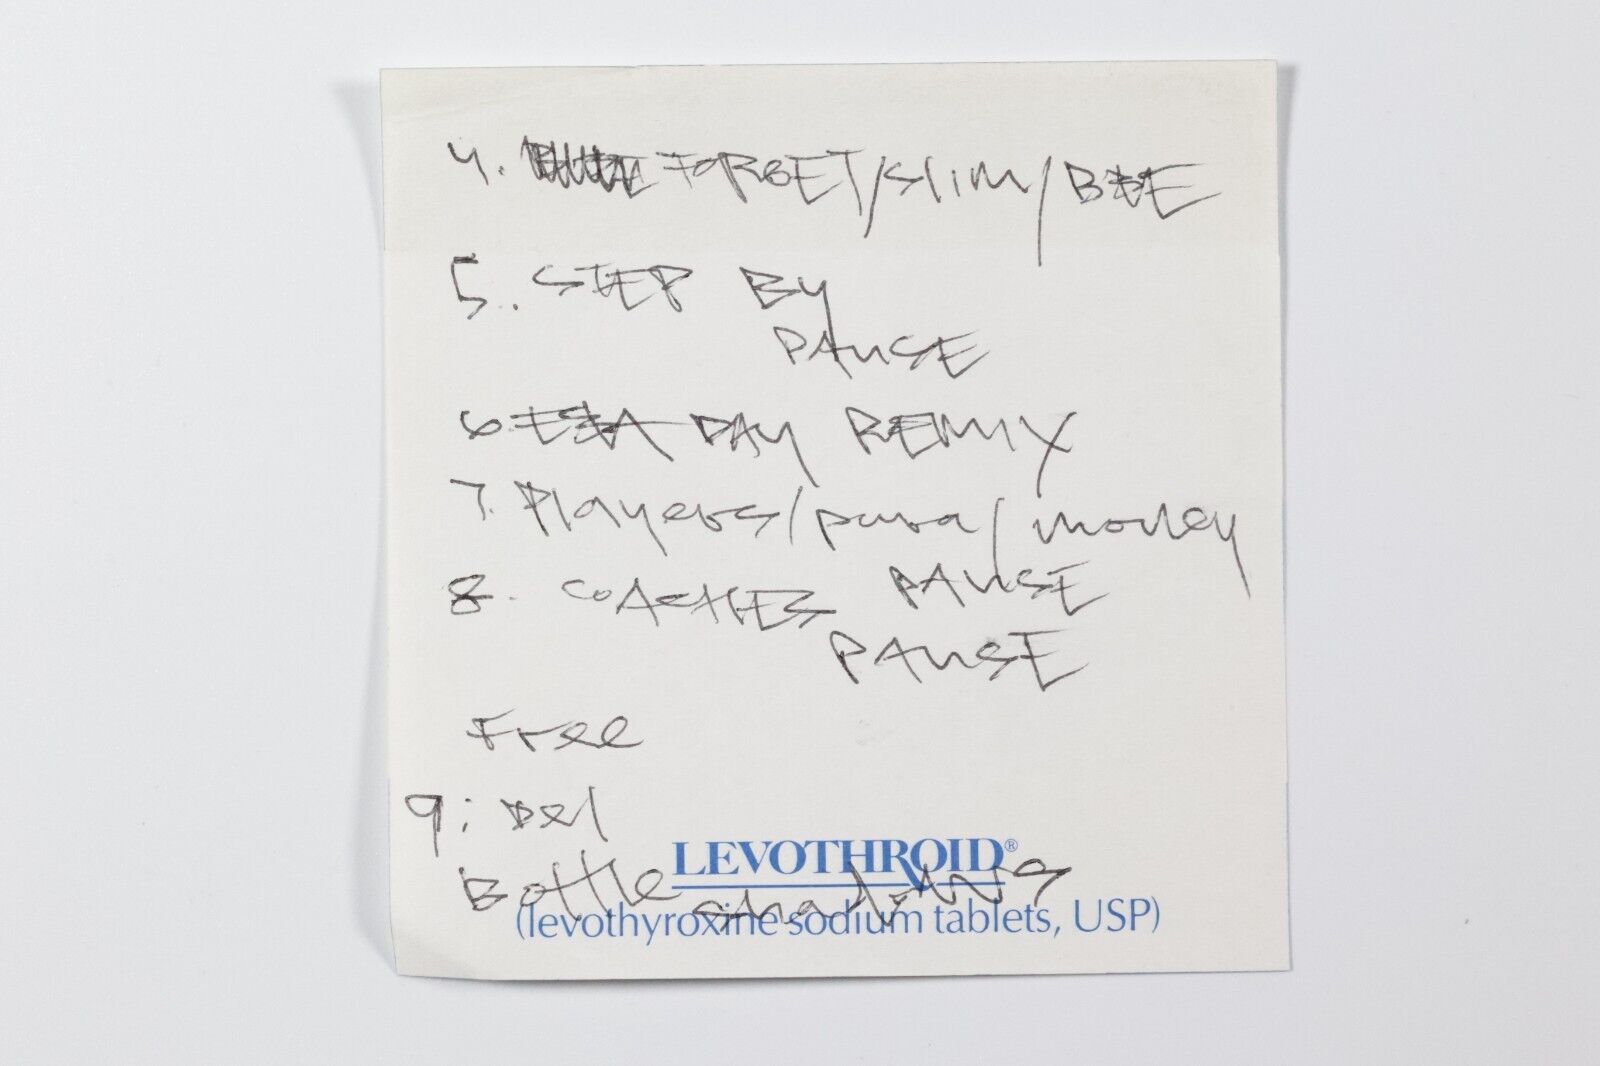 4. FORGET/slim/BEE
5. STEP BY
PAUSE
6. DAY REMIX
7. Players/pura/money
8. COACHES PAUSE
PAUSE
Free
9: Del
Bottle shadows
LEVOTHROID®
(levothyroxine sodium tablets, USP)